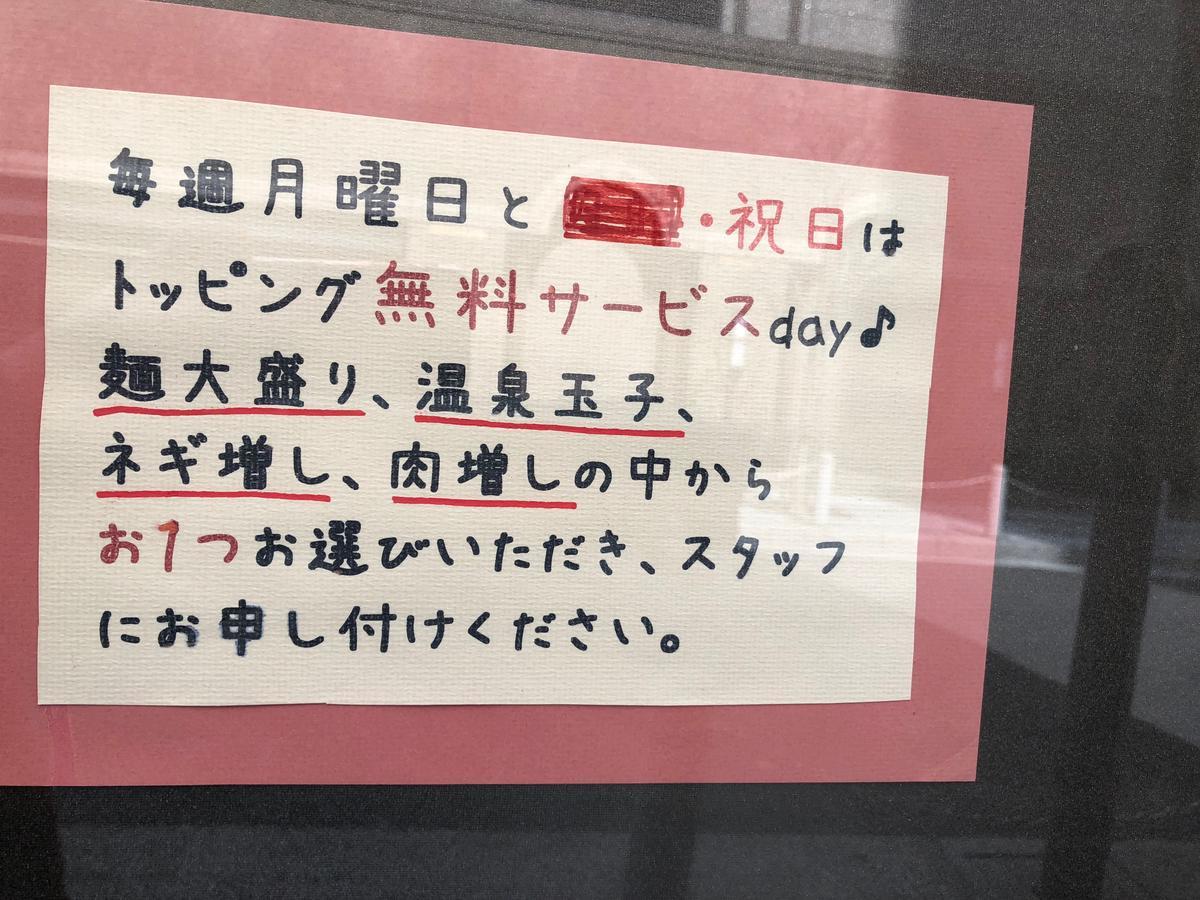 毎週月曜日と・祝日は
トッピング無料サービスday♪
麺大盛り、温泉玉子、
ネギ増し、肉増しの中から
お1つお選びいただき、スタッフ
にお申し付けください。